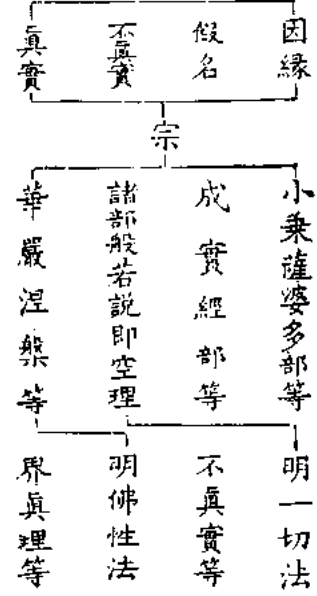 因緣
假名
不眞實
眞實
宗
小乘薩婆多部等
成實經部等
諸部般若說即空理
華嚴涅槃等
明一切法
不眞實等
明佛性法
界眞理等